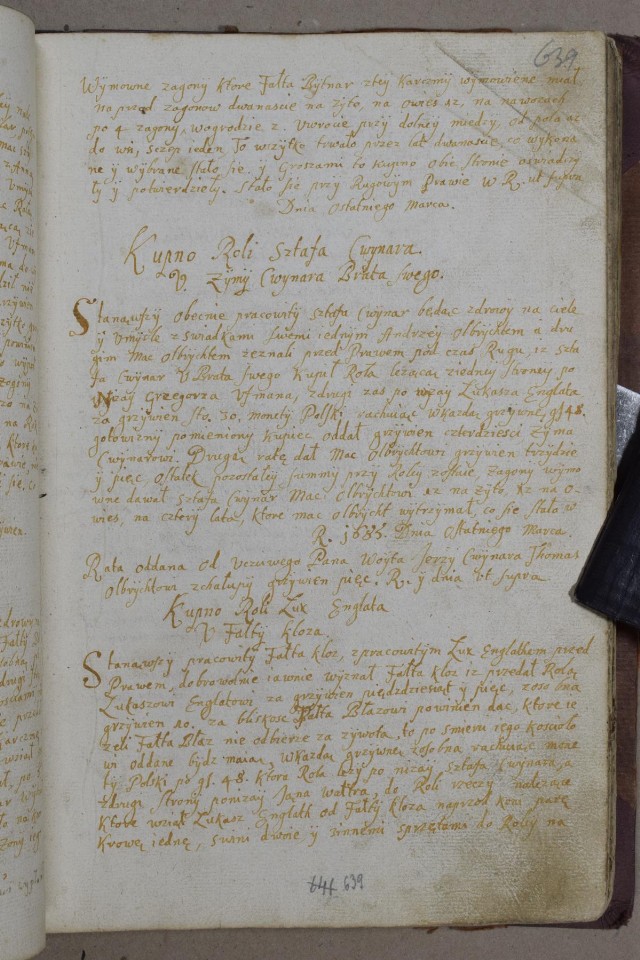 639
Wymowne zagony ktore Falta Bytnar ztey Karczmy wymowione miał,
Na przod zagonow dwanascie na zyto, na owies 12, na nawozach
po 4 zagony, wogrodzie 2. Uwrocie przy dolney miedzy, od pola az
do wsi, sczqs ieden. To wszytko trwało przez lat dwanascie, co wykona
ne y wybrane stało sie. y Groszami to kupno obie stronie oswiadczy
ły y potwierdzieły. Stało sie przy Rugowym Prawie W R. ut supra
Dnia Ostatniego Marca.
Kupno Roli Sztafa Cwynara
V. Zymy Cwynara Brata swego.
Stanąwszy obecnie pracowity Sztafa Cwynar będąc zdrowy na ciele
y Vmysle z swiadkami swemi iednym Andrzey Olbrychtem a dru
gim Mac Olbrychtem zeznali przed Prawem pod czas Rugu, iz Szta
fa Cwynar V Brata swego Kupił Rola lezącą ziedney strony po
Wyzay Grzegorza Vsmana, zdrugi zas po wyzay Lukasza Englata
za grzywien sto. 30, monety Polski rachuiąc w kazdą grzywne, gs 48.
gotowizny pomieniony kupiec oddał grzywien czterdziesci Zyma
Cwynarowi. Drugą ratę dał Mac Olbrychtowi grzywien trzydzie
y pięc, Ostatek pozostałey summy przy Rolly zostaie, zagony wymo
wne dawał Sztafa Cwynar Mac: Olbrychtowi 12 na zyto, 12 na o-
wies, na cztery lata, ktore mac olbrycht wytrzymał, co sie stało w
R. 1686. Dnia Ostatniego Marca.
Rata oddana od Vczciwego Pana Woyta Jerzy Cwynara Thomas
Olbrychtowi zchalupy grzywien pięc. R. y dnia Vt supra
Kupno Roli Lux Englata
V Falty Kloza
Stanąwszy pracowity Falta kloz, zpracowitym Lux Englathem przed
Prawem, dobrowolnie iawnie wyznał Falta kloz iz przedał Rolą
Lukaszowi Englatowi za grzywien piędzdziesiąt y pięc, zoso bna
grzywien 10. za bliskosc Falta Błazowi powinien dac, ktore ie
zeli Falta Błaz nie odbierze za zywota, to po smierci iego kosciolo
wi oddane bydz maiąc, w kazdą grzywnę zosobna rachuiąc mone
ty Polski po gs. 48. ktora Rola lezy po nizay Sztafa Cwynara, a
zdrugi strony ponizay Jana waltra, do Roli rzeczy nalezące
Ktore wziął Lukasz Englath od Falty kloza naprzod koni parę
Krowę iednę, swini dwoie y innemi sprzętami do Rolly na
644 639